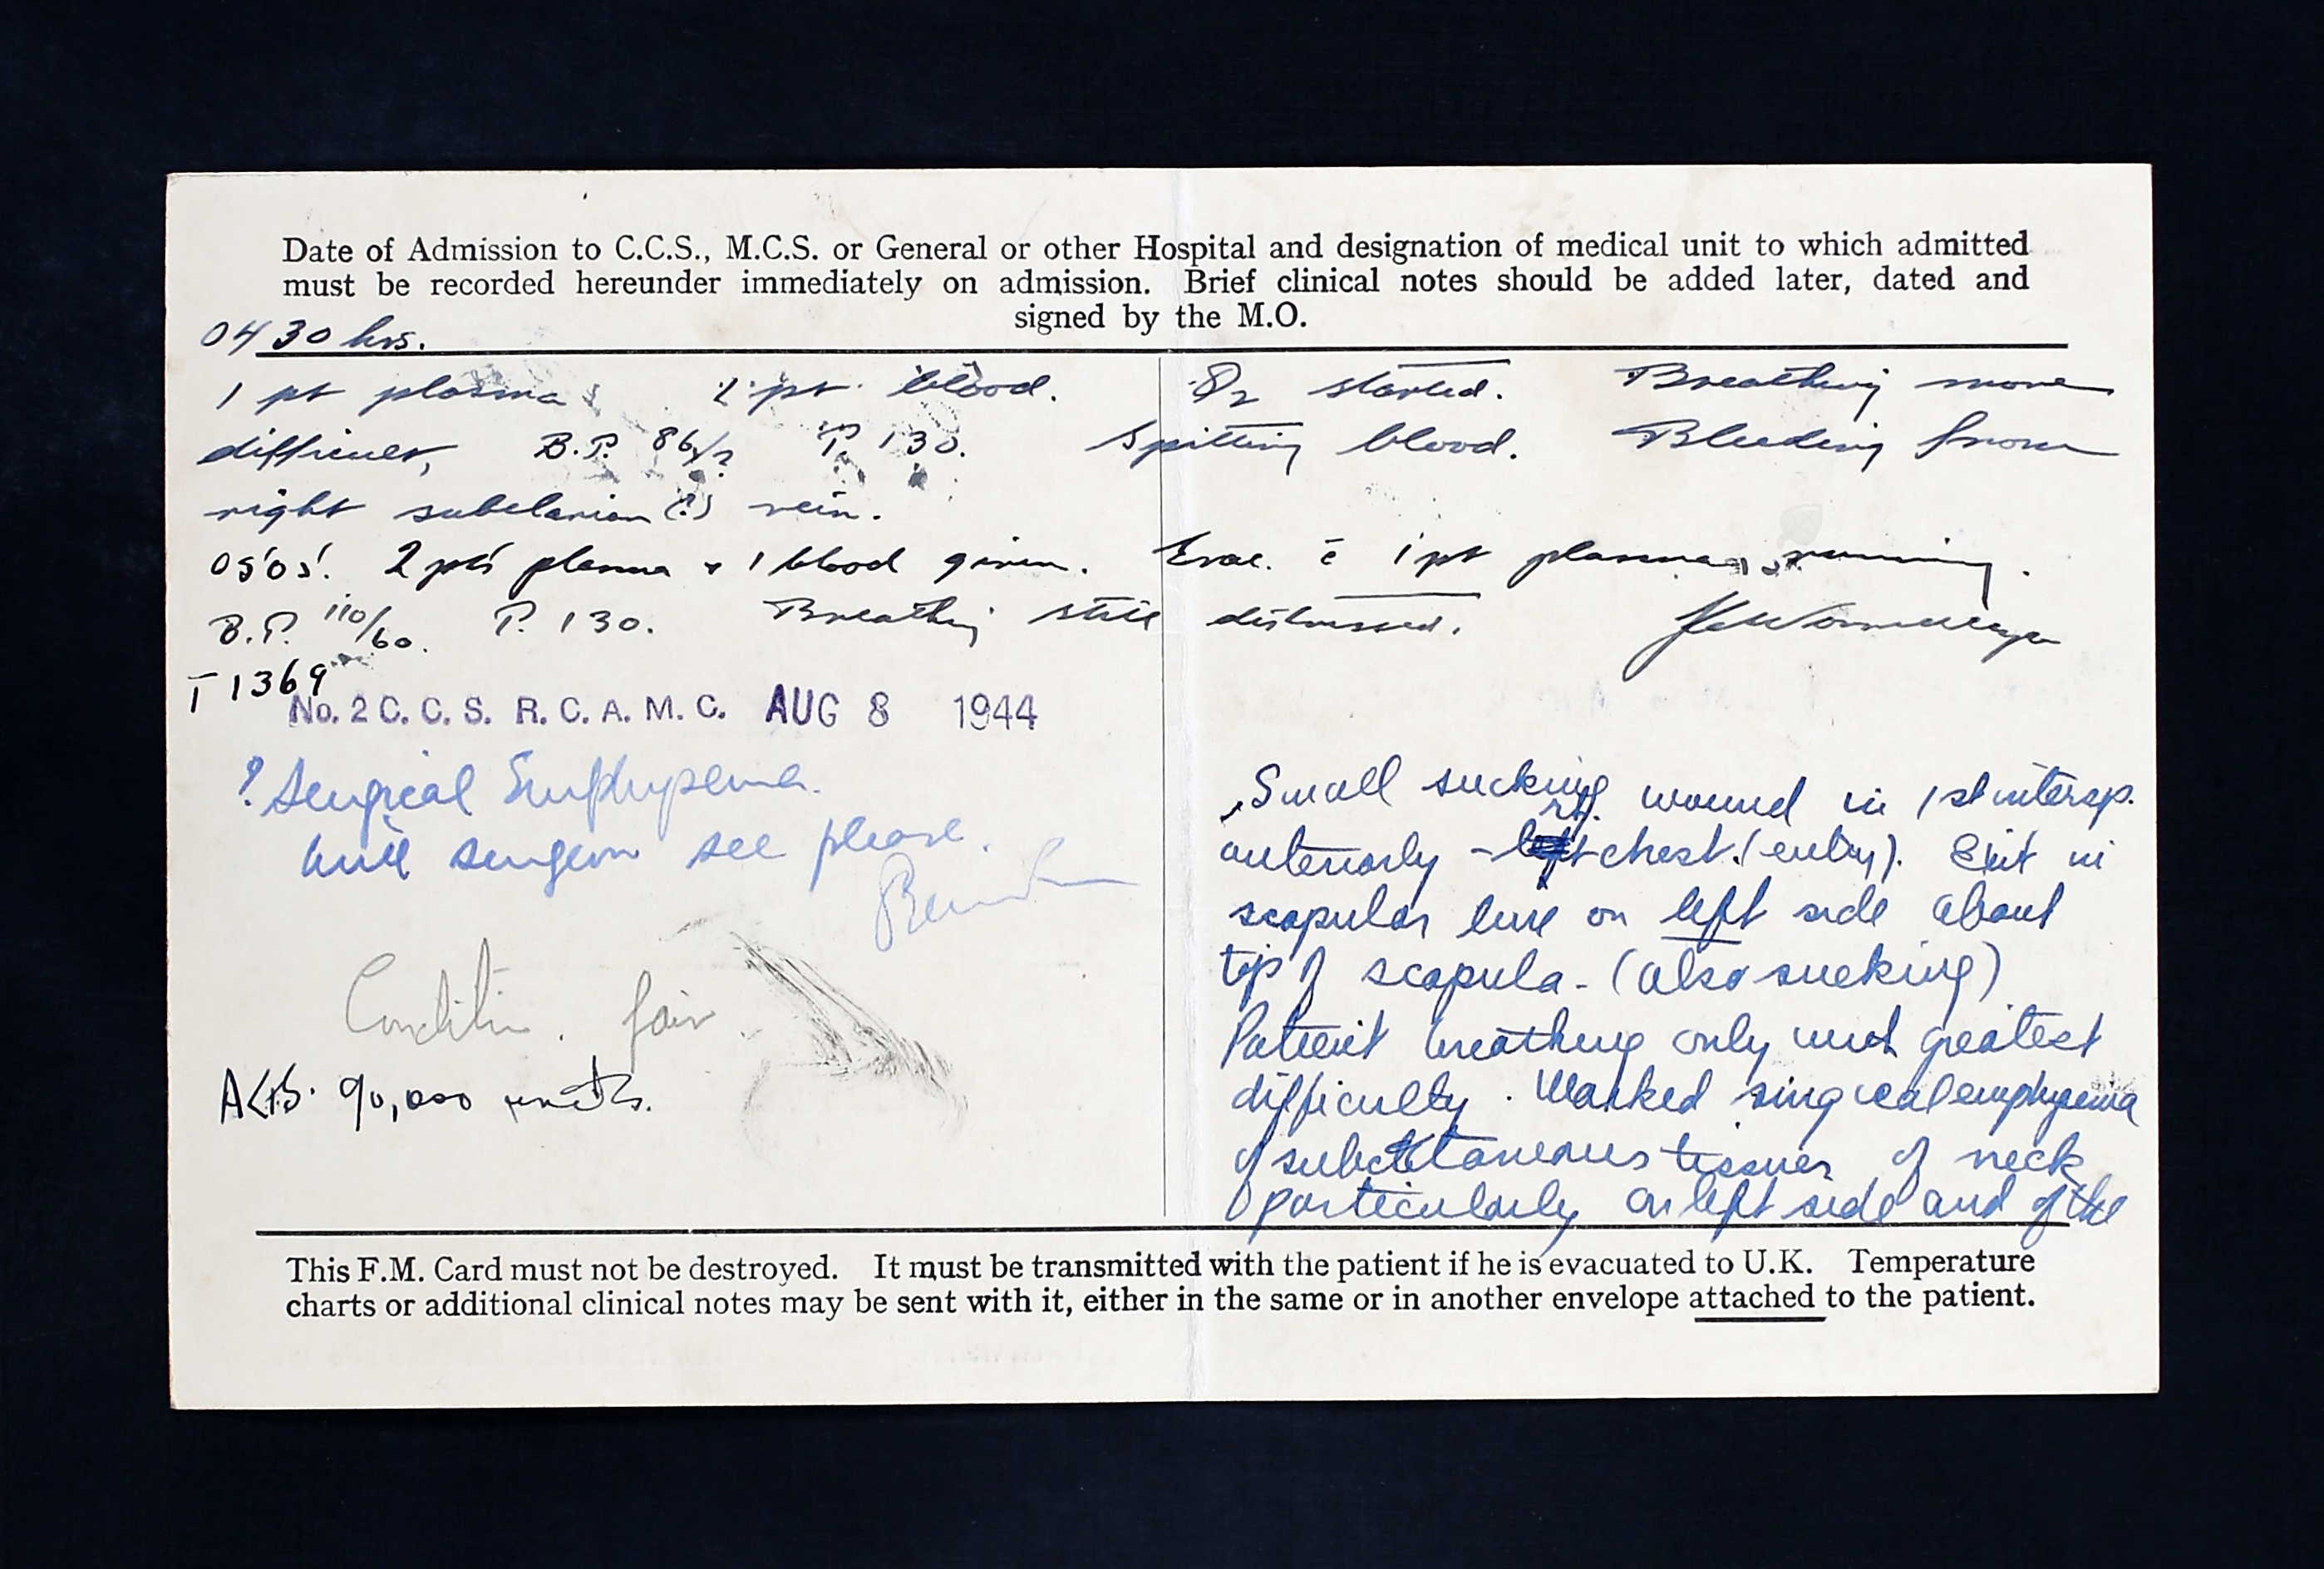 Date of Admission to C.C.S., M.C.S. or General or other Hospital and designation of medical unit to which admitted
must be recorded hereunder immediately on admission. Brief clinical notes should be added later, dated and
signed by the M.O.
0430 hrs.
1 pt plasma pt. blood. O2 started. Breathing more
difficult, B.P. 86/? P. 130. Spitting blood. Bleeding from
right subclavian (?) vein.
0505. 2 pts plasma + 1 blood given. Evac. c̄ 1 pt plasma running.
B.P. 110/60. P. 130. Breathing still distressed.
T 1369
No. 2 C. C. S. R. C. A. M. C. AUG 8 1944
? Surgical Emphysema.
Will surgeon see please.
Condition fair.
90,000 units.
Small sucking wound in 1st intersp.
anteriorly - left rt. chest. (entry). Exit in
scapular line on left side about
tip of scapula - (also sucking)
Patient breathing only with greatest
difficulty. Marked surgical emphysema
of subcutaneous tissues of neck
particularly on left side and of the
This F.M. Card must not be destroyed. It must be transmitted with the patient if he is evacuated to U.K. Temperature
charts or additional clinical notes may be sent with it, either in the same or in another envelope attached to the patient.